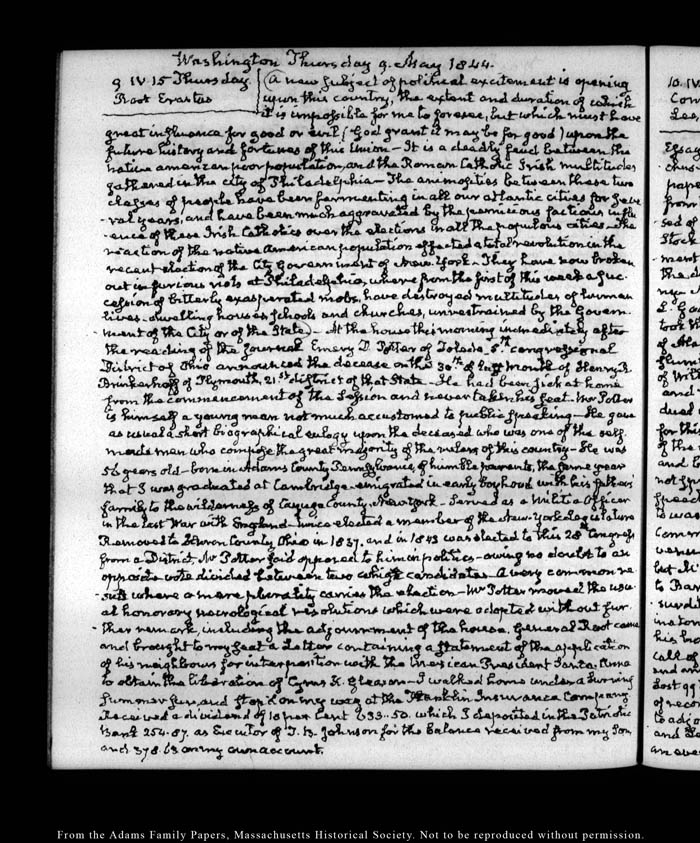 Washington Thursday 9. May 1844.
9 IV.15 Thursday
Root Erastus
A new subject of political excitement is opening
upon this country, the extent and duration of which
it is impossible for me to foresee, but which must have
great influence for good or evil (God grant it may be for good) upon the
future history and fortunes of this Union — It is a deadly feud between the
native american poor population, and the Roman Catholic Irish multitudes
gathered in the city of Philadelphia — The animosities between these two
classes of people have been fermenting in all our atlantic cities for seve
-ral years, and have been much aggravated by the pernicious factious influ
-ence of these Irish Catholics over the elections in all the populous cities — The
reaction of the native American population effected a total revolution in the
recent election of the City Government of New-York — They have now broken
out in furious riots at Philadelphia, where from the first of this week a suc
cession of bitterly exasperated mobs, have destroyed multitudes of human
lives, dwelling houses, schools and churches, unrestrained by the Govern-
-ment of the City or of the State — At the house this morning immediately after
the reading of the Journal Emery D. Potter of Toledo 5th congressional
District of Ohio announced the decease on the 30th of last month of Henry R
Brinkerhoff of Plymouth, 21st district of that State — He had been sick at home
from the commencement of the Session and never taken his seat. Mr Potter
is himself a young man not much accustomed to public speaking — He gave
as usual a short biographical eulogy upon the deceased who was one of the self
made men who compose the great majority of the rulers of this country — He was
56 years old — born in Adams County Pennsylvania, of humble parents, the same year
that I was graduated at Cambridge — emigrated in early boyhood with his father's
family to the wilderness of Cayuga County, New York — Served as a Militia Officer
in the last War with England — twice elected a member of the New-York Legislature
Removed to Huron County Ohio in 1837. and in 1843 was elected to this 28th Congress
from a District, Mr Potter said opposed to him in politics — owing no doubt to an
opposite vote divided between two whig candidates — A very common re
-sult where a mere plurality carries the election — Mr Potter moved the usu-
al honorary necrological resolutions which were adopted without fur
-ther remark, including the adjournment of the house. General Root came
and brought to my seat a Letter containing a statement of the application
of his neighbours for interposition with the Mexican President Santa Anna
to obtain the liberation of Cyrus K. Gleason — I walked home under a burning
Summer Sun, and stop'd on my way at the Franklin Insurance Company
Received a dividend of 10 per Cent which I deposited in the Patriotic
Bank 254.87. as Executor of T. B. Johnson for the balance received from my Son
and 378.63 on my own account.
10. IV
Essay
paper
from
sed of
Stock
ment
took th
and
for this
of the
and
not
was
but
his
Call of
and
of
to
and
From the Adams Family Papers, Massachusetts Historical Society. Not to be reproduced without permission.